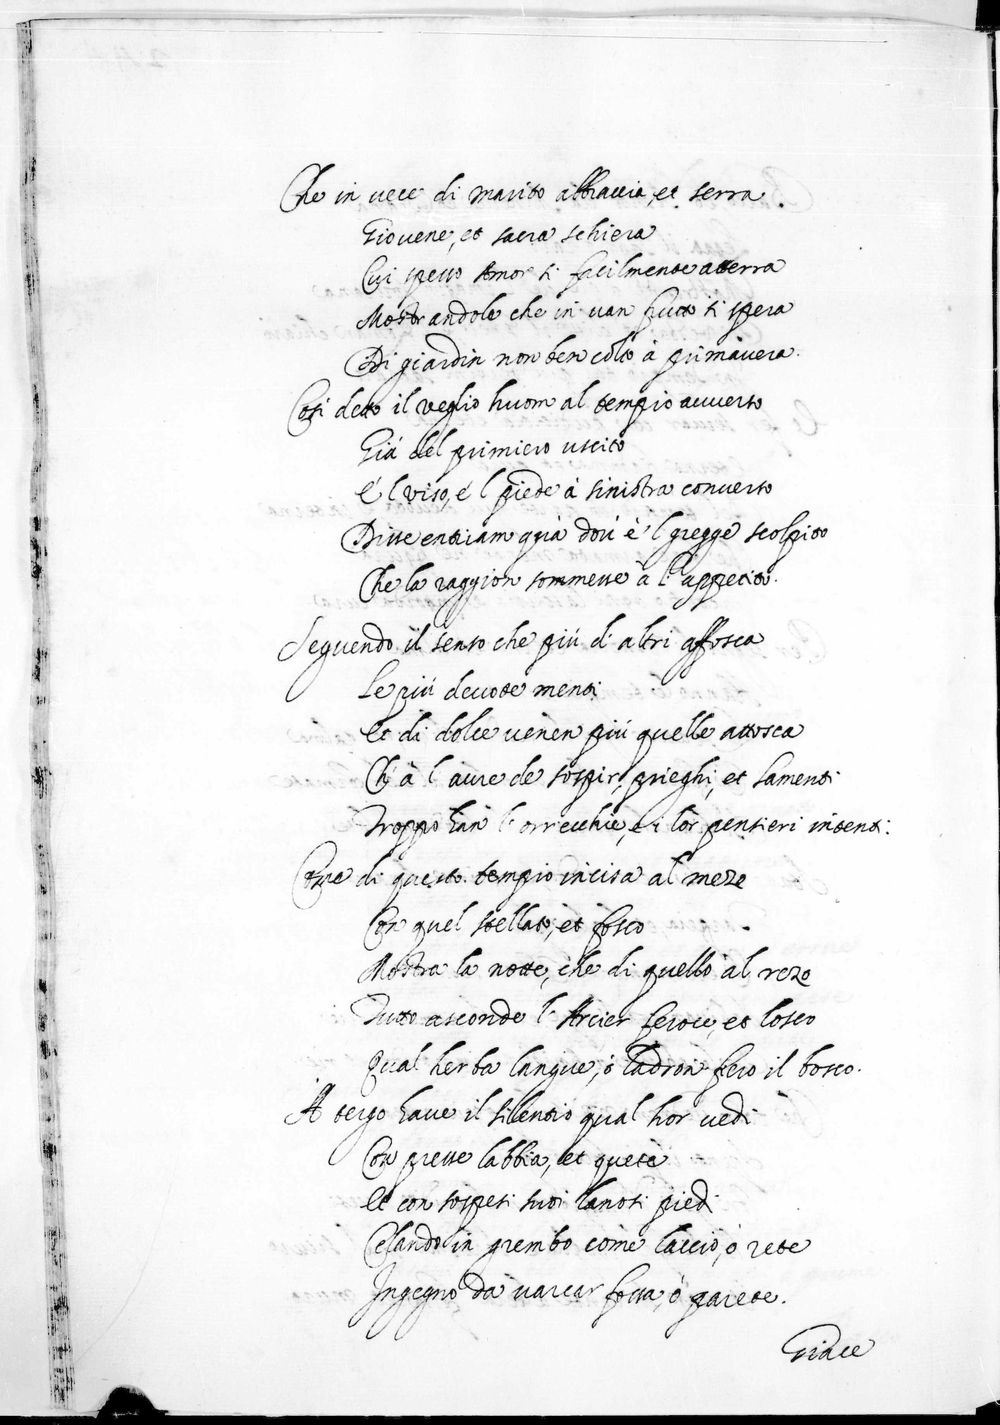 Che in vece di marito abbraccia, et serra
Giovene, et sacra schiera
Cui spesso Amor ti facilmente atterra
Mostrandole che in van frutto si spera
Di giardin non ben colto à primavera.
Cosi detto il veglio huom al tempio avverso
Giá del primiero uscito
E 'l viso, e 'l piede à sinistra converso
Disse entriam quà dov' è 'l gregge scolpito
Che la raggion sommesse à l' appetito.
Seguendo il senso che piú di altri affosca
Le piú devote menti
Et di dolce venen piú quelle attosca
Ch' à l' aure de sospir, prieghi, et lamenti
Troppo han l' orrecchie, e i lor pensieri intenti.
Come di questo tempio incisa al meze
Con quel stellato, et fosco
Mostra la notte, che di quello al reze
Tutto asconde l' Arcier feroce, et losco
Qual herba l'angue, ó ladron fero il bosco.
A tergo have il silentio qual hor vedi
Con presse labbia, et quete
Et con sospesi suoi lanosi piedi
Celando in grembo come laccio, ó rete
Ingegno da varcar fossa, ó parete.
Giace